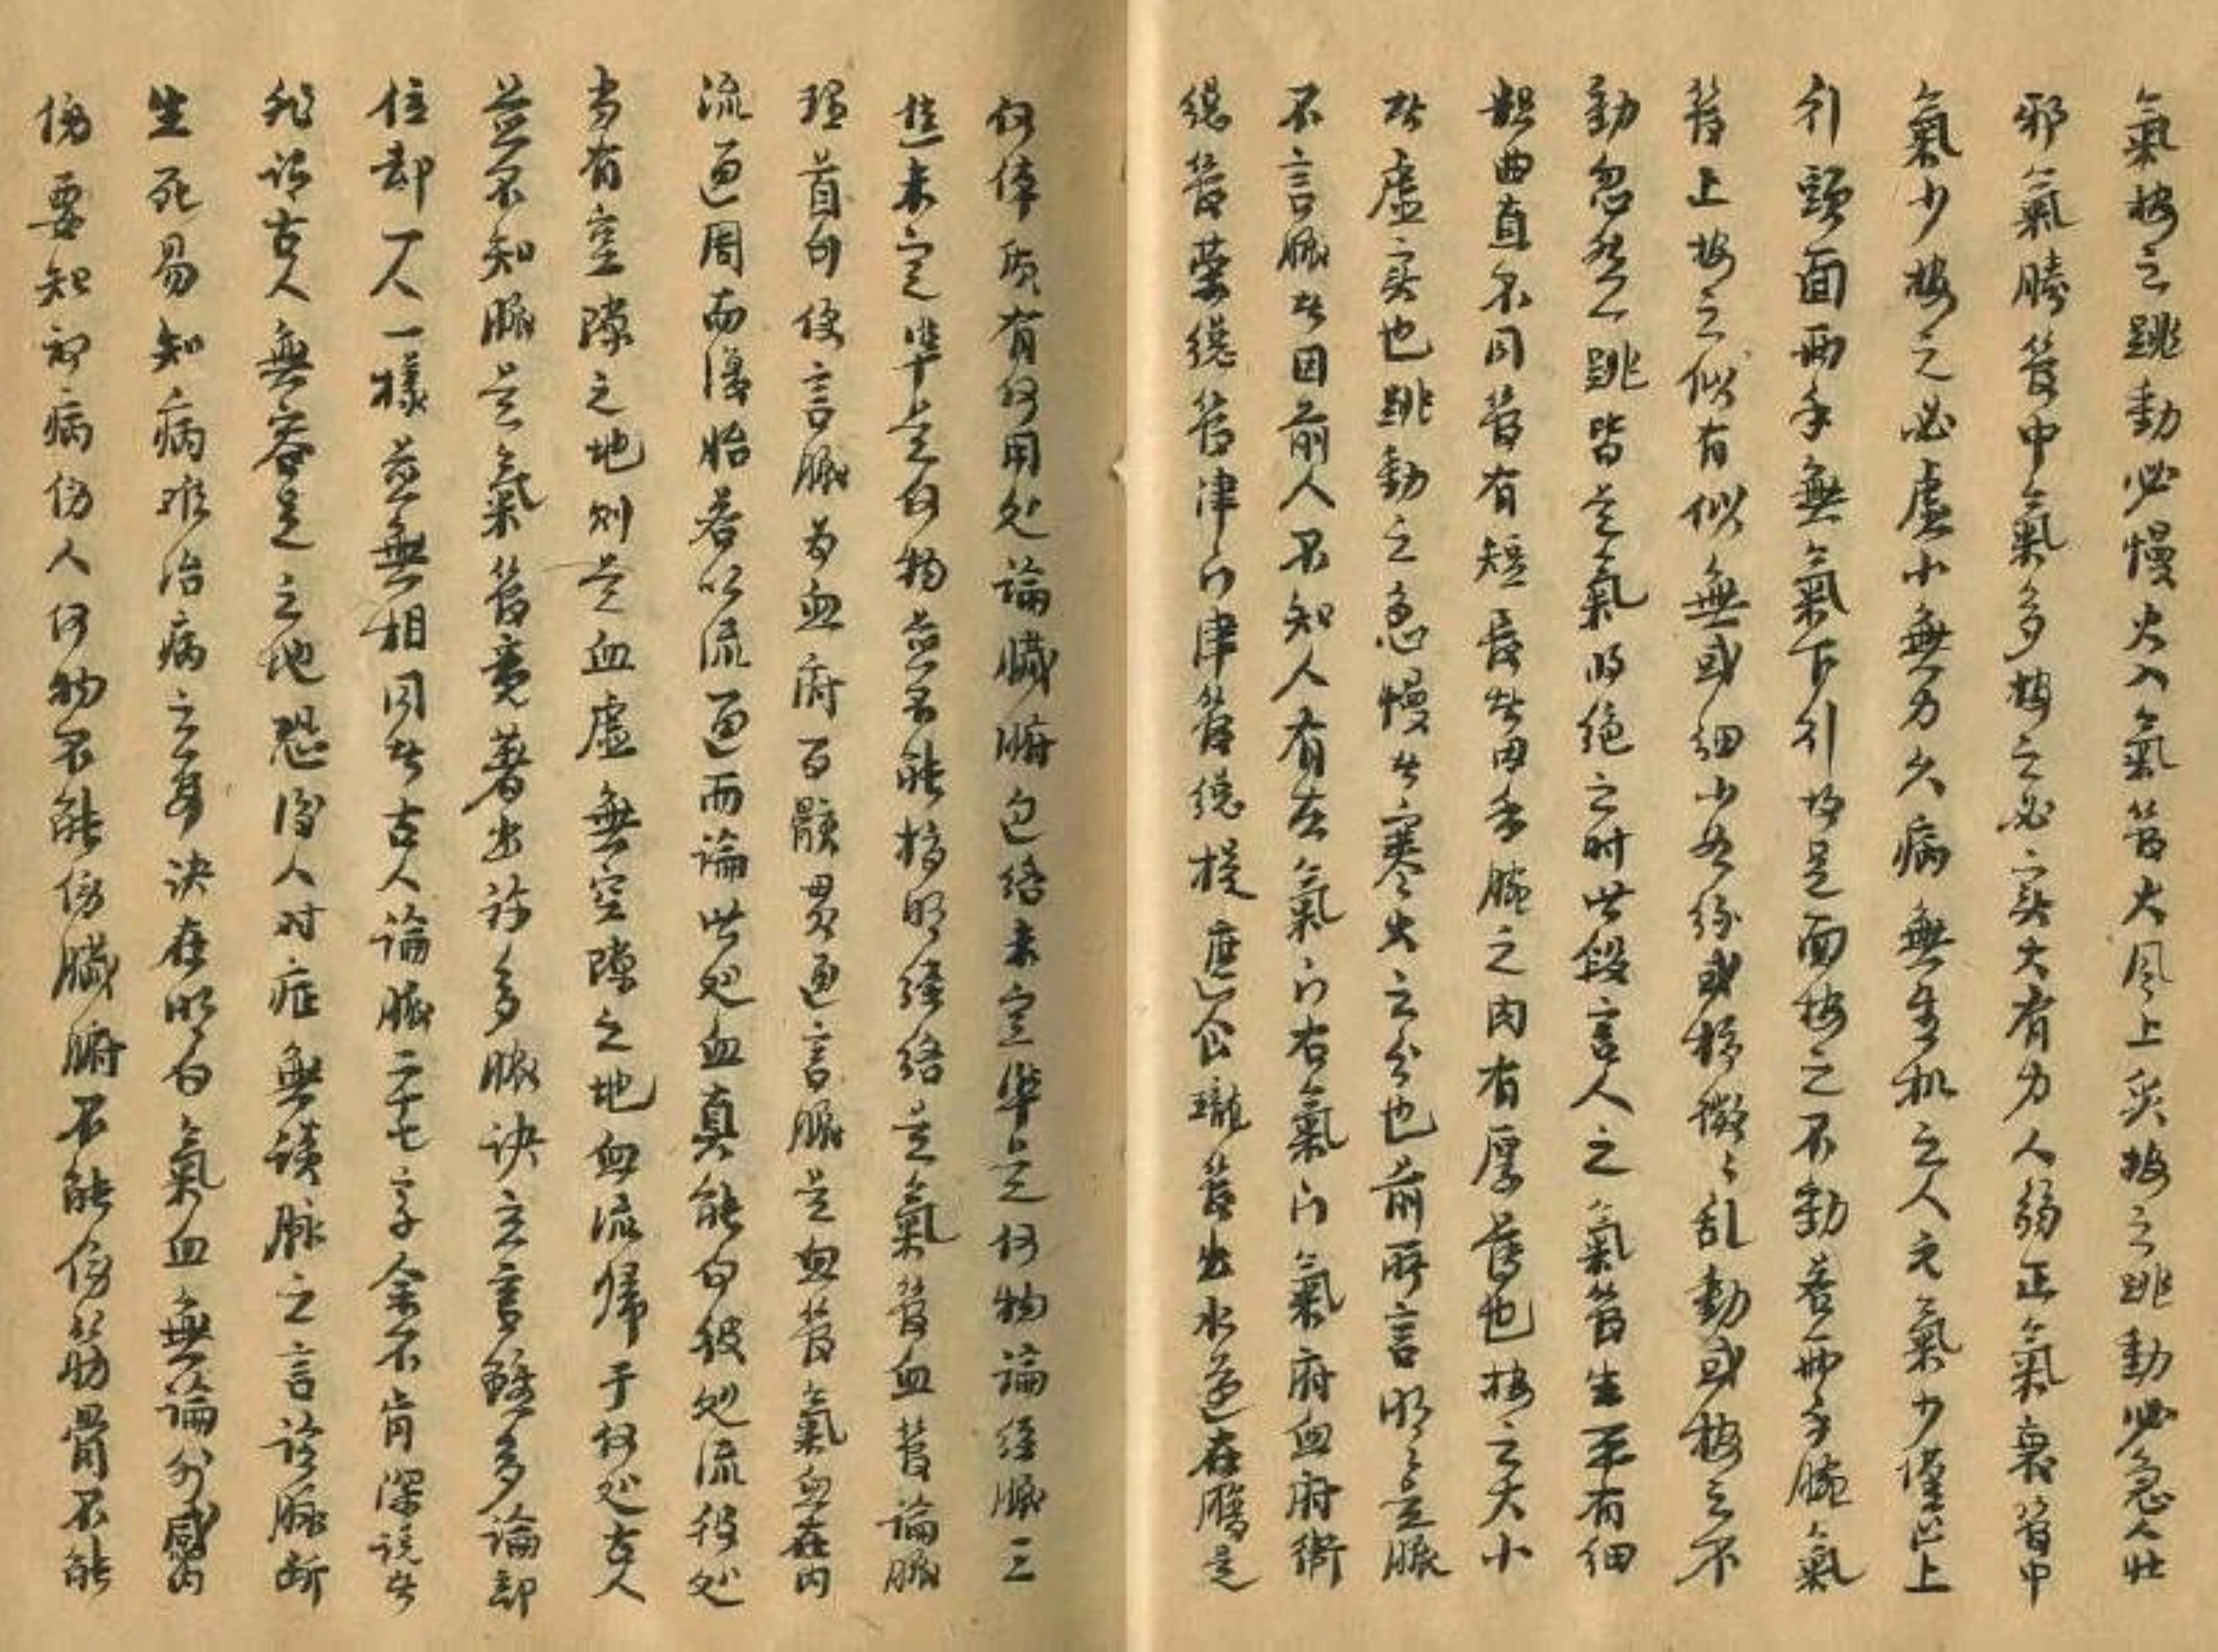 氣按之跳動必慢火入氣管火風上炎按之跳動必急人壯
邪氣勝管中氣多按之必实大有力人弱正氣衰管中
氣少按之必虛小無力久病無生机之人元氣少僅止上
引頭面両手無氣下引故是面按之不動若両手腕氣
管上按之似有似無或細小如絲或按微〻乱動或按之不
動忽然一跳皆是氣的绝之时此段言人之氣管生平有細
粗曲直不同管有短長者因手腕之肉有厚薄也按之大小
者虛实也跳動之急慢者寒火之分也前所言明〻是脈
不言脈者因前人不知人有左氣门右氣门氣府血府衛
總管荣總管津门津管總提遮食瓏管出水道在膈是
何体质有何用处論臟腑包络未定準是何物論经脈三
焦未定準是何物並不能指明経络是氣管血管論脈
理首句便言脈为血府百骸贯通言脈是血管氣血在内
流通周而復始若以流通而論此处血真能向彼处流彼处
当有空隙之地则是血虛無空隙之地血流歸于何处古人
並不知脈是氣管竟著出許多脈訣立言雖多論部
位却一人一樣並無相同者古人論脈二十七字余不肯深說者
非謂古人無容足之地恐後人对症無談脈之言診脈断
生死易知病难治病之要訣在明白氣血無論外感内
傷要知初病伤人何物不能傷臟腑不能傷筋骨不能